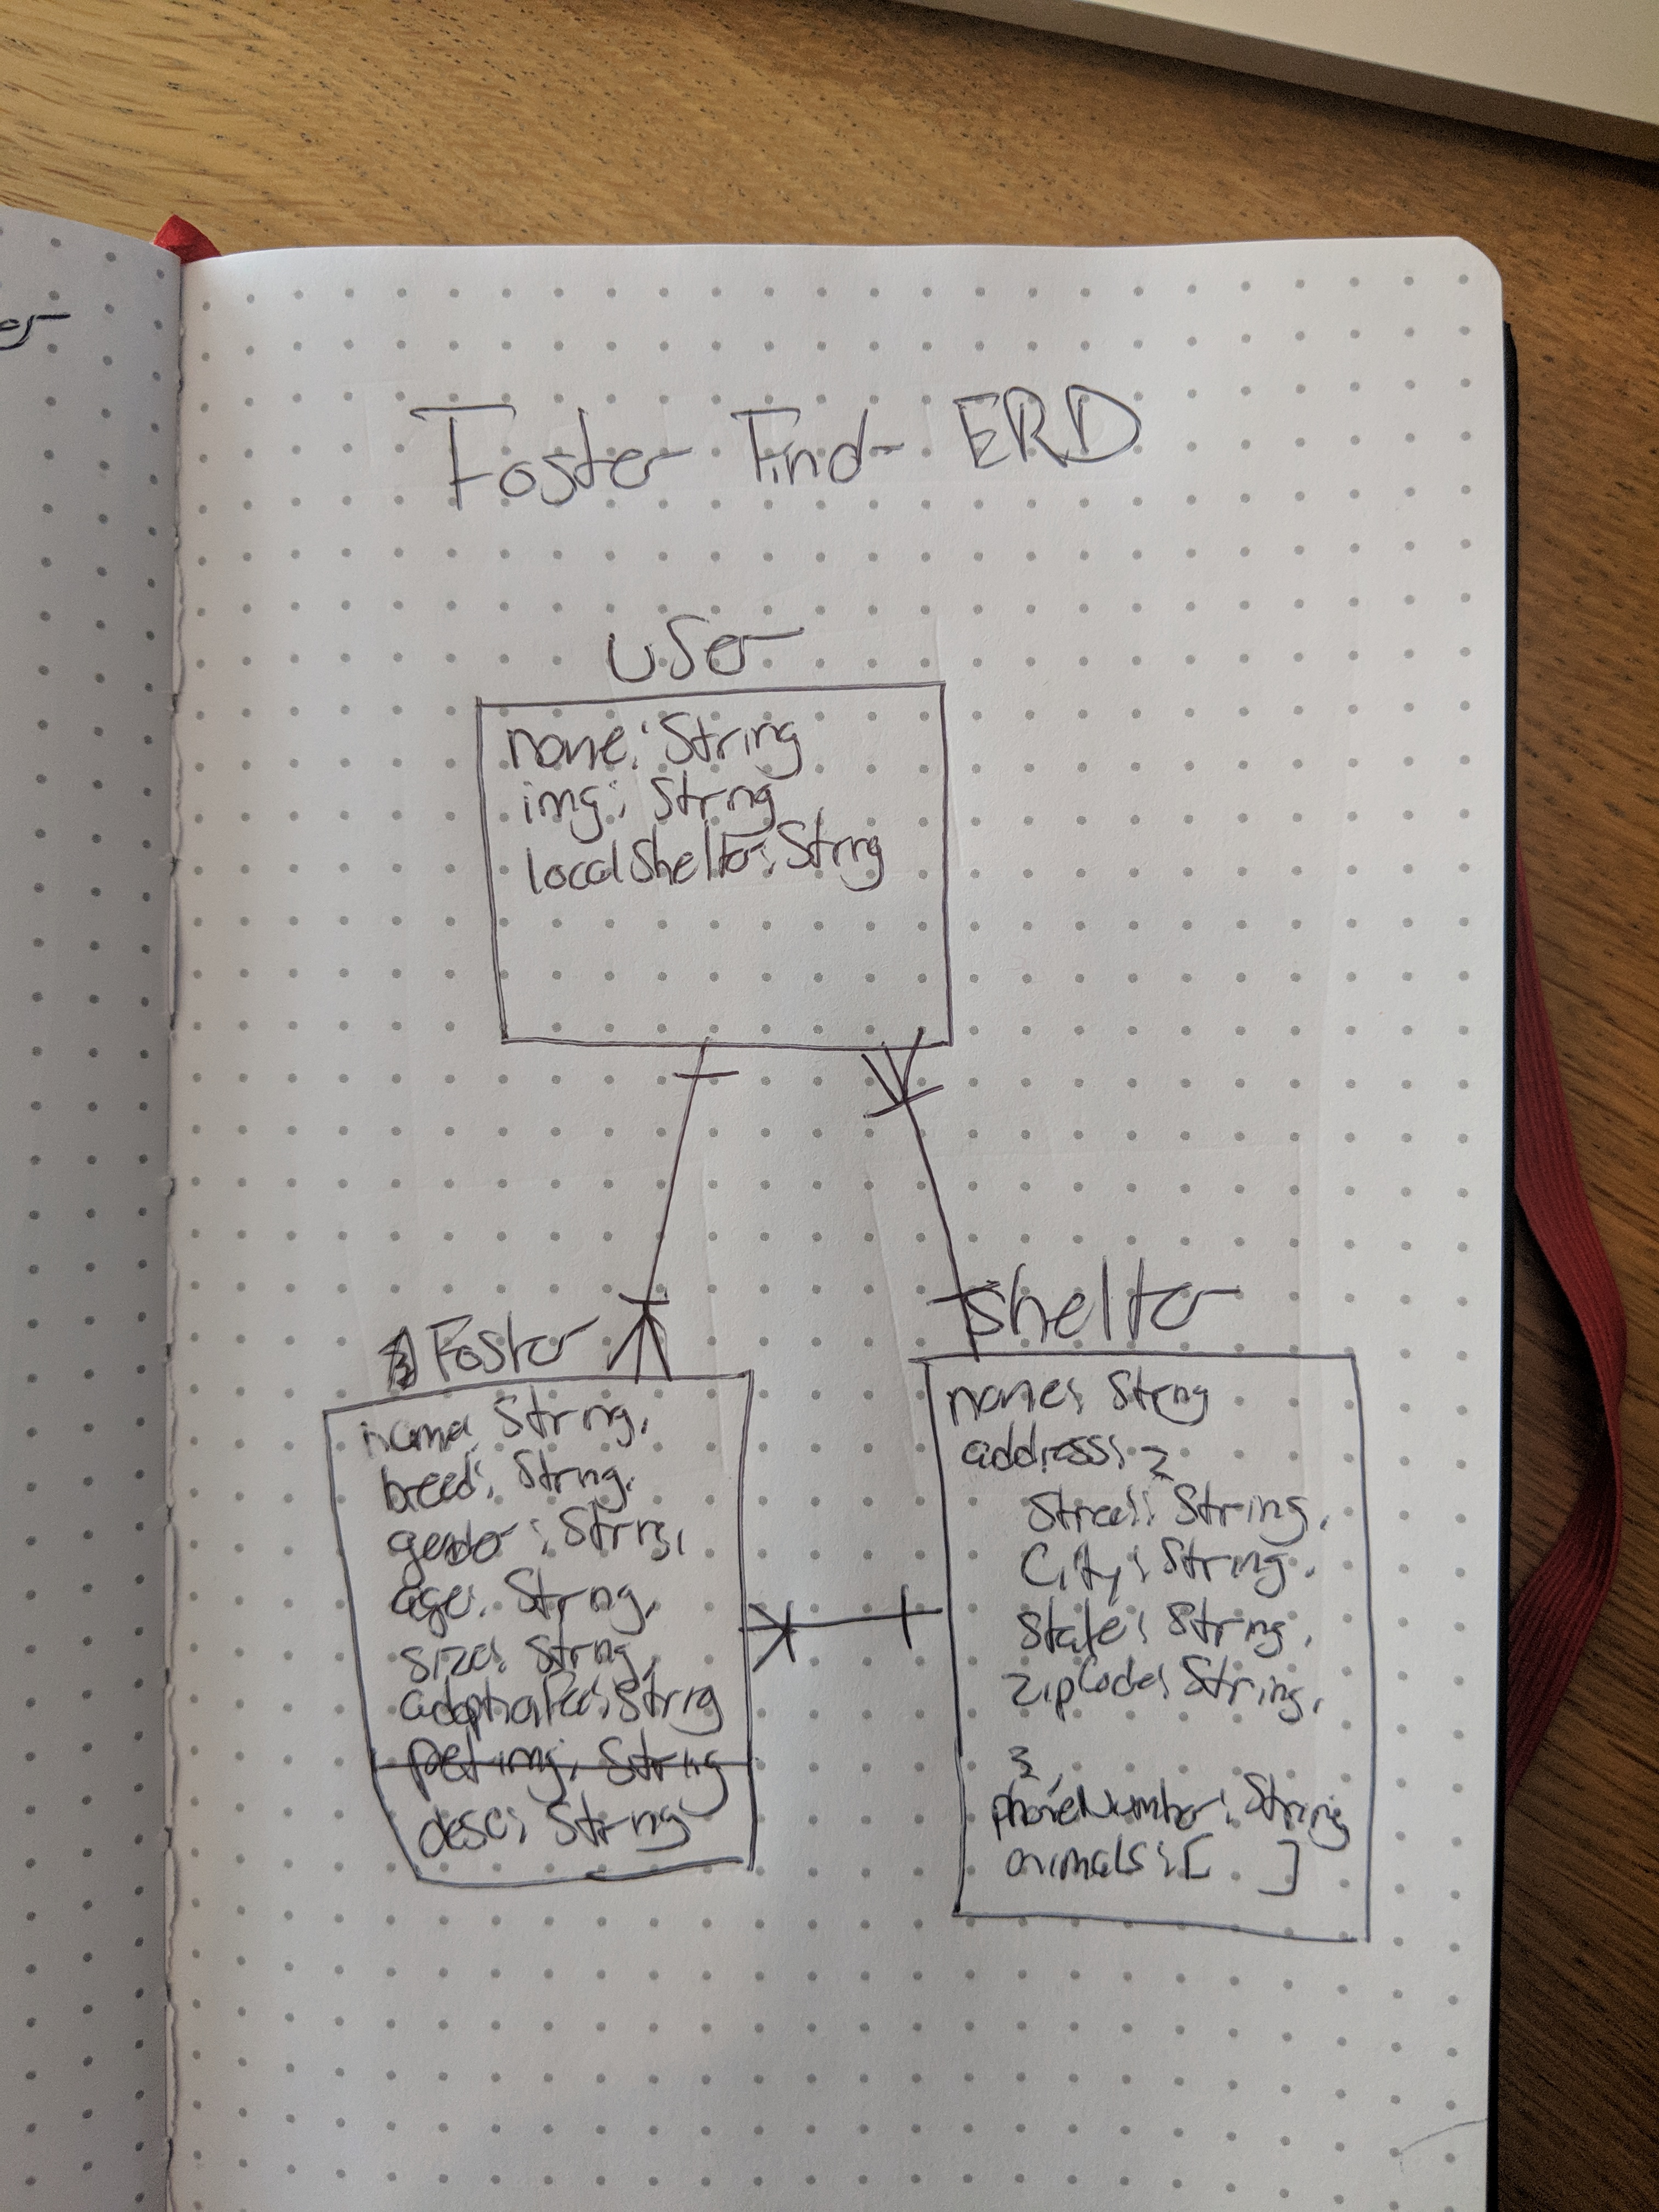 Foster Find- ERD
User
name: String
img: String
localShelter: String
Foster
name: String,
breed: String,
gender: String,
age: String,
size: String,
adoptionFee: String
pet img: String
desc: String
Shelter
name: String
address: {
Street: String,
City: String,
State: String,
zipCode: String,
},
phoneNumber: String
animals: [ ]